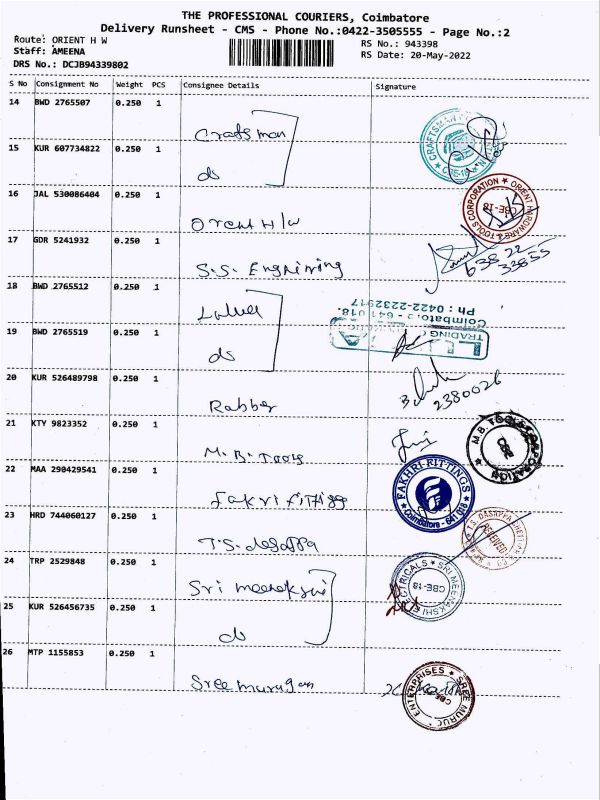 THE PROFESSIONAL COURIERS, Coimbatore
Delivery Runsheet - CMS - Phone No.:0422-3505555 - Page No.:2
Route: ORIENT H W
RS No.: 943398
Staff: AMEENA
RS Date: 20-May-2022
DRS No.: DCJB94339802
S No Consignment No Weight PCS Consignee Details Signature
14 BWD 2765507 0.250 1
Craftsman
15 KUR 607734822 0.250 1
do
16 JAL 530086404 0.250 1
Orient H/W
17 GDR 5241932 0.250 1
S.S. Engnirring
638 22
33855
18 BWD 2765512 0.250 1
Coimbatore - 641 018.
Ph : 0422-2232917
TRADING
19 BWD 2765519 0.250 1
do
20 KUR 526489798 0.250 1
Rabber
2380026
21 KTY 9823352 0.250 1
M.B. Tools
22 MAA 290429541 0.250 1
Fakri fittigs
FAKHRI-FITTINGS
Coimbatore - 641 018
23 HRD 744060127 0.250 1
T.S. dasappa
RECEIVED
24 TRP 2529848 0.250 1
Sri meenakshi
SRI MEENAKSHI ELECTRICALS
CBE-18
25 KUR 526456735 0.250 1
do
26 MTP 1155853 0.250 1
Sree murugan
SREE MURUG
ENTERPRISES
CBE